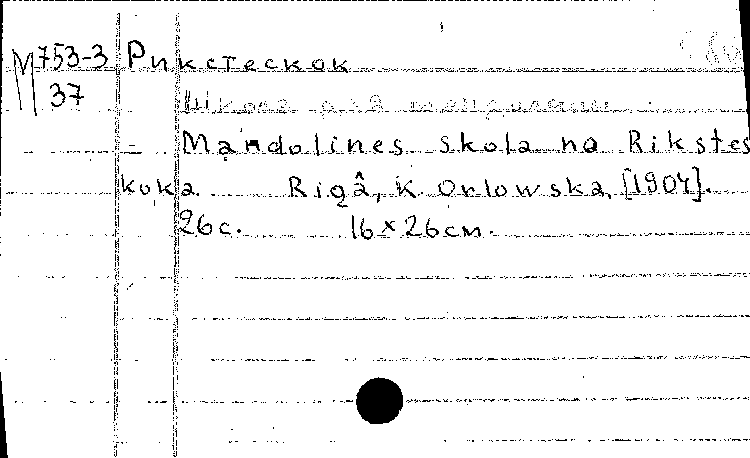 М 753-3 Рикстескок
37 Школа для мандолины.
- Mandolines skola no Rikstes
koka. Rigâ, K. Orlowska, [1904].
26с. 16×26см.